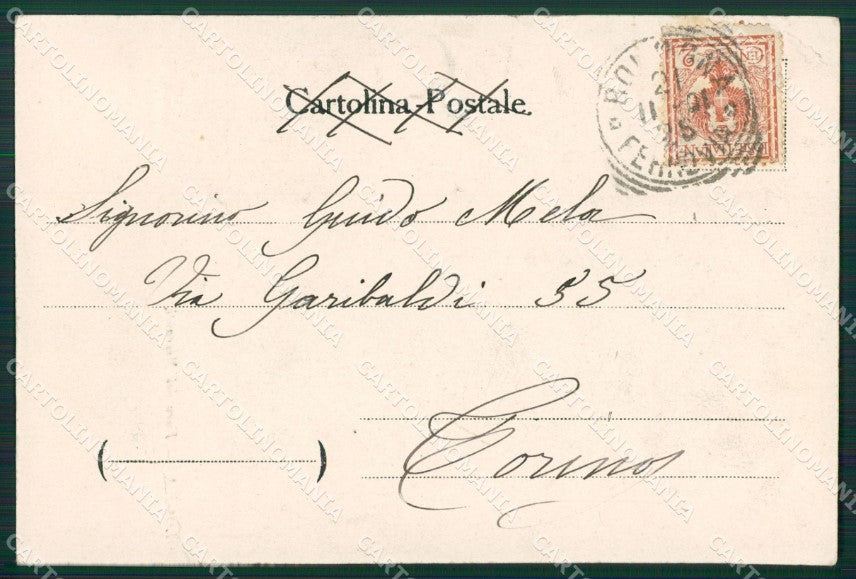 Cartolina Postale.
Signorino Guido Mela
Via Garibaldi 55
Torino
( )
CARTOLINOMANIA